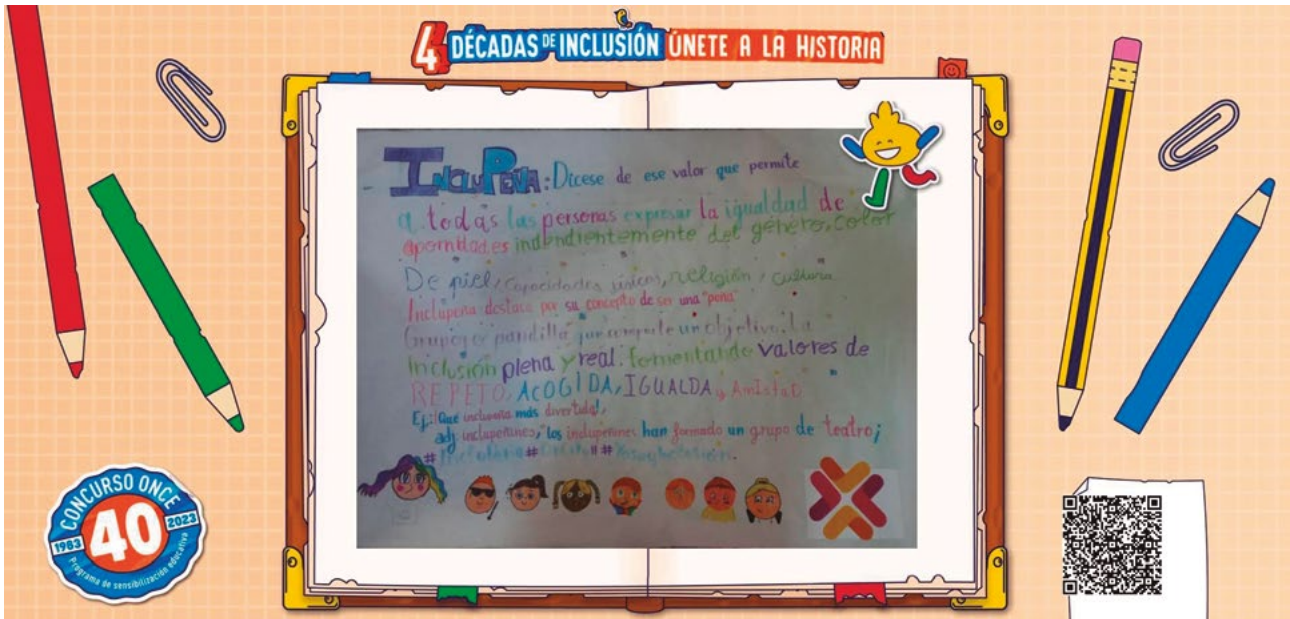 4 DÉCADAS DE INCLUSIÓN ÚNETE A LA HISTORIA
INCLUPEÑA: Dícese de ese valor que permite
a todas las personas expresar la igualdad de
indendientemente del género, color
De piel, capacidades físicas, religión, cultura
Inclupeña destaca por su concepto de ser una "peña"
Grupo o pandilla que comparte un objetivo: la
inclusión plena y real. fomentando valores de
REPETO, ACOGIDA, IGUALDA y AmIstad
Ej: ¡Qué más divertida!,
adj: inclupeñines, "los inclupeñines han formado un grupo de teatro¡
CONCURSO ONCE
1983 40 2023
Programa de sensibilización educativa